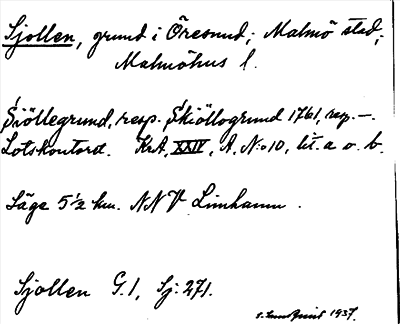 Sjollen, grund i Öresund; Malmö stad;
Malmöhus l.
Siöllegrund, resp. Skiöllogrund 1761, resp. —.
Lotskontord. KrA, XXIV, A, N:o 10, lit. a o. b.
Läge 5 1/2 km. NNV Limhamn.
Sjollen G. 1, Sj: 271.
1937.